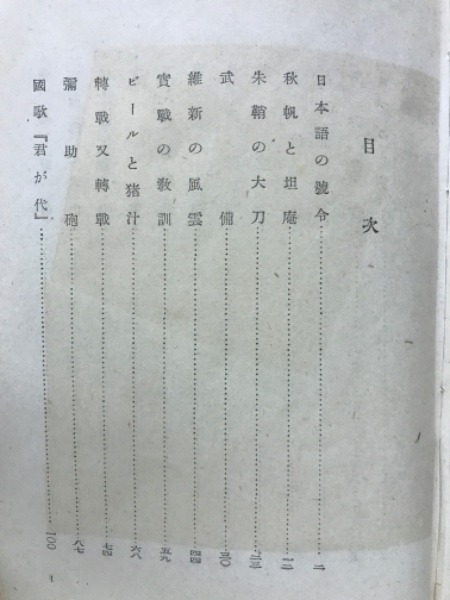 目次
日本語の號令…二
秋帆と坦庵…一二
朱鞘の大刀…二三
武備…三〇
維新の風雲…四四
實戰の敎訓…五九
ビールと猪汁…六八
轉戰又轉戰…七四
彌助砲…八七
國歌『君が代』…一〇〇
1